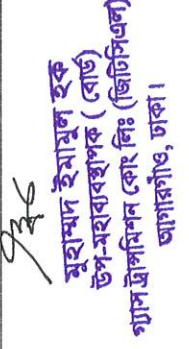 মুহাম্মদ ইমামুল হক
উপ-মহাব্যবস্থাপক (বোর্ড)
গ্যাস ট্রান্সমিশন কোং লিঃ (জিটিসিএল)
আগারগাঁও, ঢাকা।